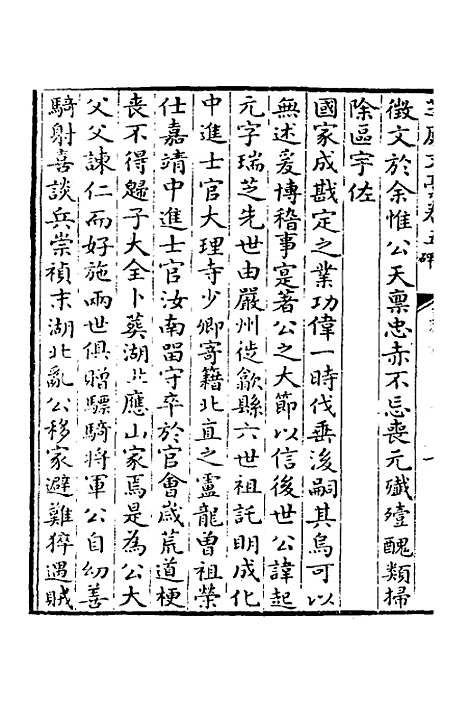 徵文於余惟公天稟忠赤不忘喪元殲殪醜類掃
除區宇佐
國家成戡定之業功偉一時伐垂後嗣其烏可以
無述爰博稽事寔著公之大節以信後世公諱起
元字瑞芝先世由嚴州徙歙縣六世祖託明成化
中進士官大理寺少卿寄籍北直之盧龍曾祖榮
仕嘉靖中進士官汝南留守卒於官會歲荒道梗
喪不得歸子大全卜葬湖北應山家焉是為公大
父父諫仁而好施兩世俱贈驃騎將軍公自幼善
騎射喜談兵崇禎末湖北亂公移家避難猝遇賊